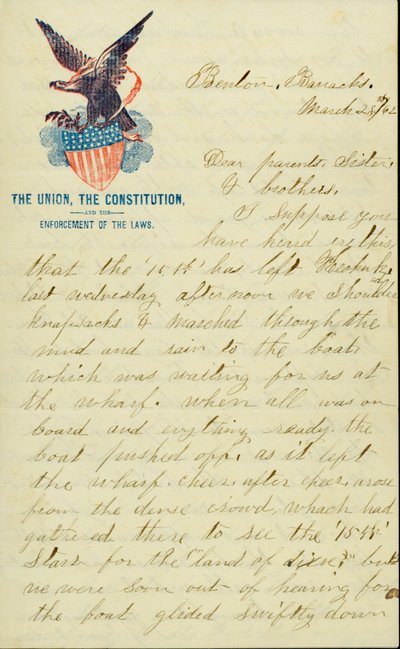 Benton, Barracks.
March 25th/62
THE UNION, THE CONSTITUTION,
AND THE
ENFORCEMENT OF THE LAWS.
Dear parents, Sister,
& brothers.
I Suppose you
have heard ere this,
that the '15th' has left Keokuk.
last wednesday afternoon we Shouldered
knapsacks & marched through the
mud and rain to the boat,
which was waiting for us at
the wharf. when all was on
board and evrything ready. the
boat pushed off. as it left
the wharf. cheer, after cheer, arose
from the dense crowd, which had
gathered there to see the '15th'
Start for the "land of dixie," but
we were soon out of hearing for
the boat glided swiftly down